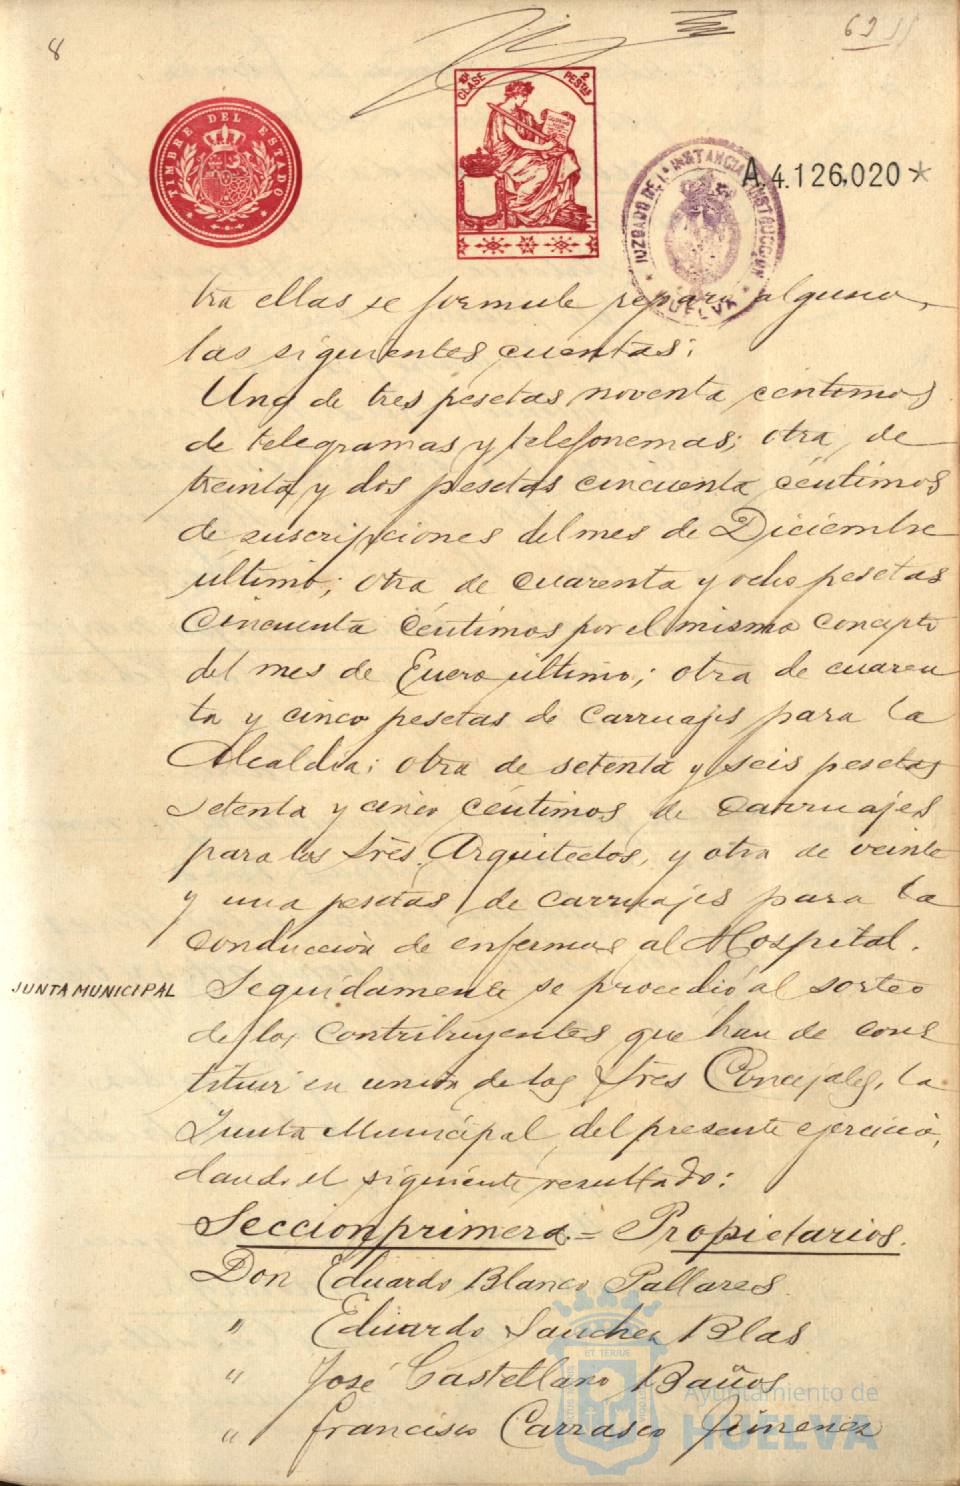 8
62
10ª CLASE 2 PESTAS
TIMBRE DEL ESTADO
JUZGADO DE 1ª INSTANCIA INSTRUCCION HUELVA
A.4.126,020*
tra ellas se formule reparo alguno,
las siguientes cuentas:
Una de tres pesetas noventa centimos
de telegramas y telefonemas; otra de
treinta y dos pesetas cincuenta céntimos
de suscripciones del mes de Diciembre
último; otra de cuarenta y ocho pesetas
Cincuenta Céntimos por el mismo concepto
del mes de Enero último; otra de cuaren
ta y cinco pesetas de Carruajes para la
Alcaldia; otra de setenta y seis pesetas
setenta y cinco céntimos de carruajes
para los tres Arquitectos, y otra de veinte
y una pesetas de carruajes para la
conducción de enfermos al Hospital.
JUNTA MUNICIPAL Seguidamente se procedió al sorteo
de los contribuyentes que han de cons
tituir en unión de los tres Concejales, la
Junta Municipal del presente ejercicio,
dando el siguiente resultado:
Seccion primera.= Propietarios.
Don Eduardo Blanco Pallares
" Eduardo Sanchez Blas
" José Castellano Baños
" Francisco Carrasco Jimenez
Ayuntamiento de
HUELVA